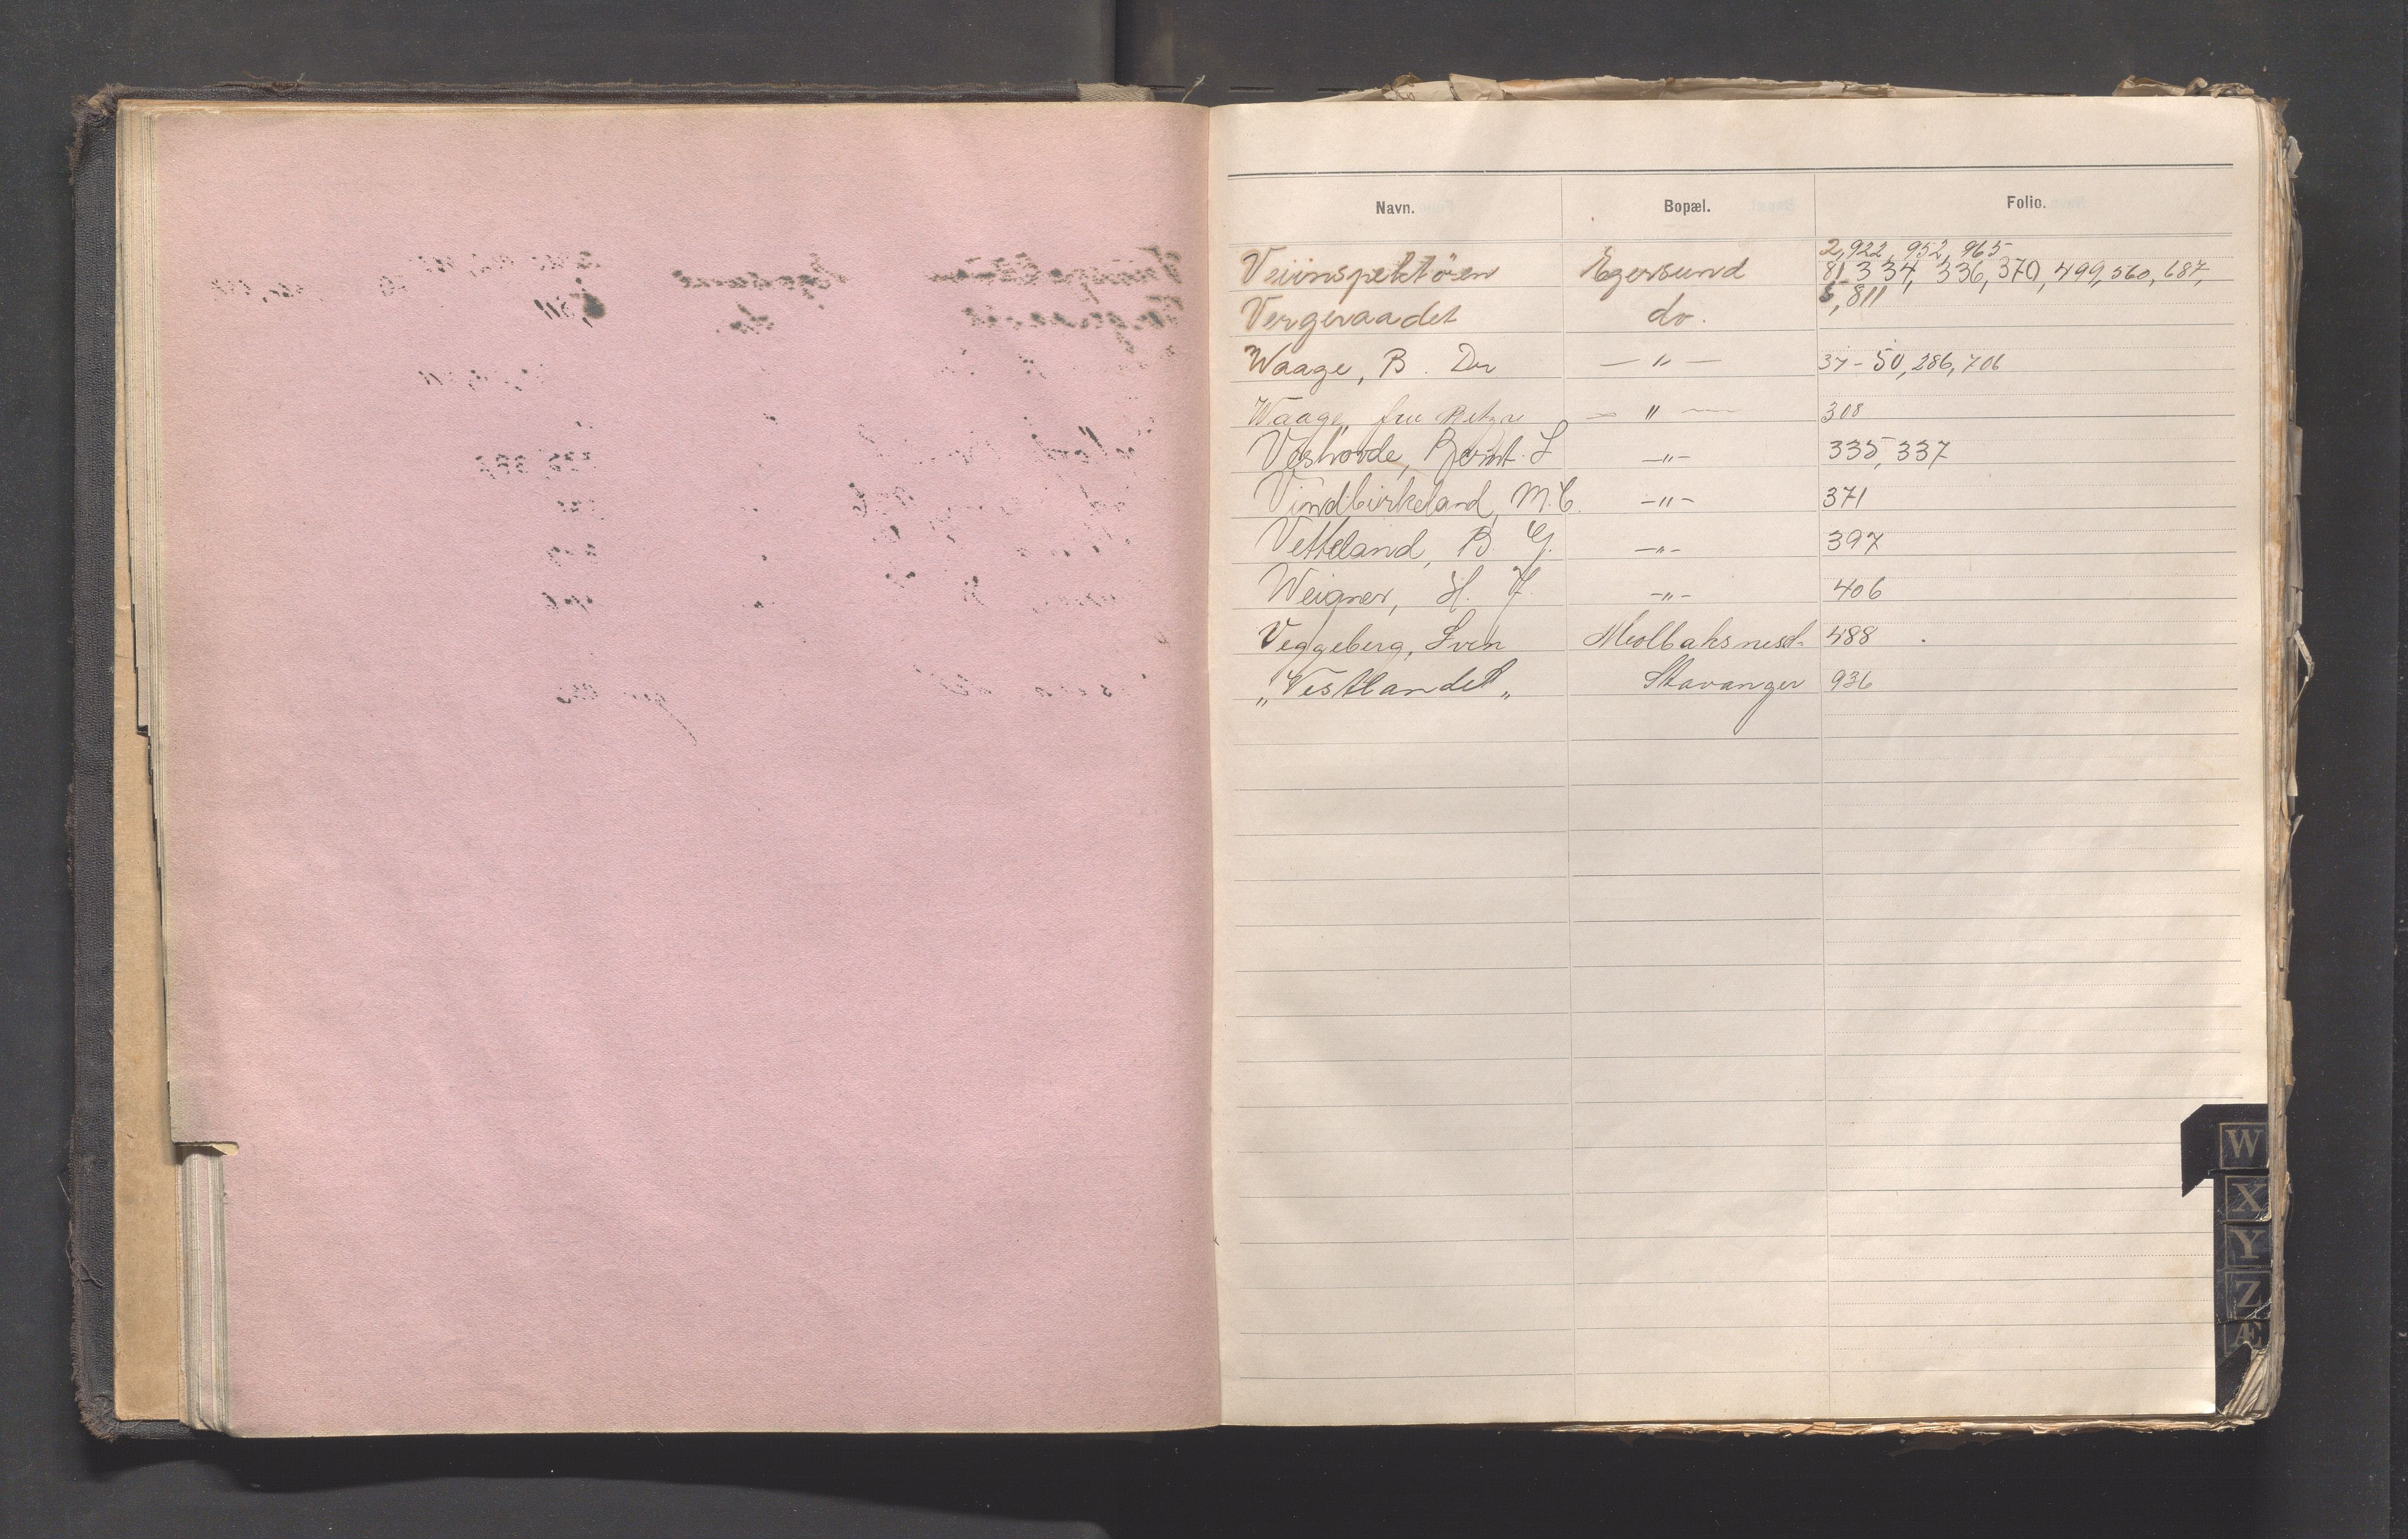 Navn. Bopæl. Folio.
2, 922, 952, 965
Veiinspektøren Egersund 81, 334, 336, 370, 499, 560, 687,
Vergeraadet do. 5, 811
Waage, B. Dr — " — 37-50, 286, 706
Waage, fru Betzy — " — 308
Veshovde, Bernt. L —"— 335, 337
Vindbirkeland, M. C. —"— 371
Vetteland, B. G. —"— 397
Weigner, H. F. —"— 406
Veggeberg, Sven 488
"Vestlandet" Stavanger 936
W
X
Y
Z
Æ